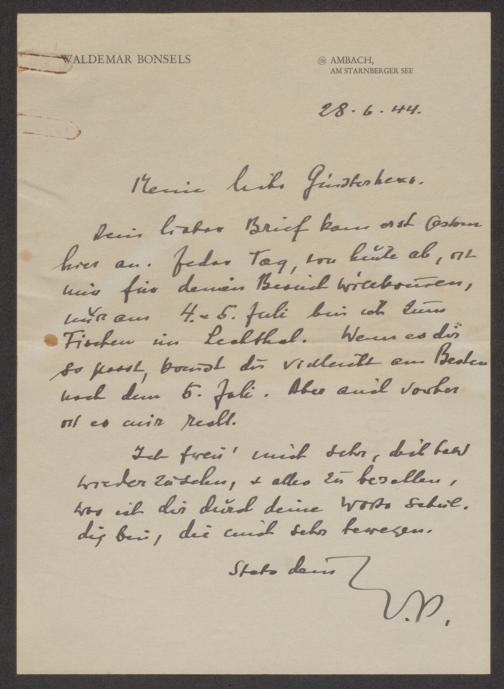 WALDEMAR BONSELS
AMBACH,
AM STARNBERGER SEE
28.6.44.
Mein liebes
Dein lieber Brief kam erst gestern
hier an. Jeder Tag, von heute ab, ist
mir für deinen Besuch willkommen,
nur am 4. & 5. Juli bin ich zum
Fischen im Lechthal. Wenn es dir
so passt, kommst du vielleicht am Besten
nach dem 5. Juli. Aber auch vorher
ist es mir recht.
Ich freu' mich sehr, dich bald
wiederzusehen, & alles zu bezahlen,
was ich dir durch deine Worte schul-
dig bin, die mich sehr bewegen.
Stets dein
W.B.